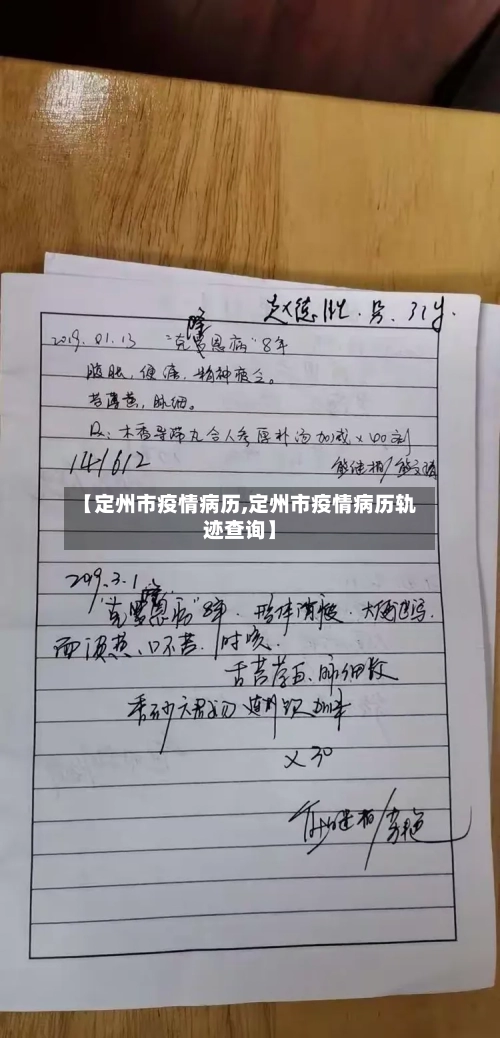 赵德胜.男.31岁.
隆
2019.01.13 "克罗恩病"8年
腹胀,便溏.精神疲乏。
苔薄黄,脉细。
Rx:木香导滞丸合人参厚朴汤加减×40剂
141612
熊继柏/
【定州市疫情病历,定州市疫情病历轨
迹查询】
2019.3.1
隆
"克罗恩病"8年.形体消瘦.大便
面 .口不苦.时咳.
舌苔薄白、脉细数
香砂六君
×30
熊继柏/